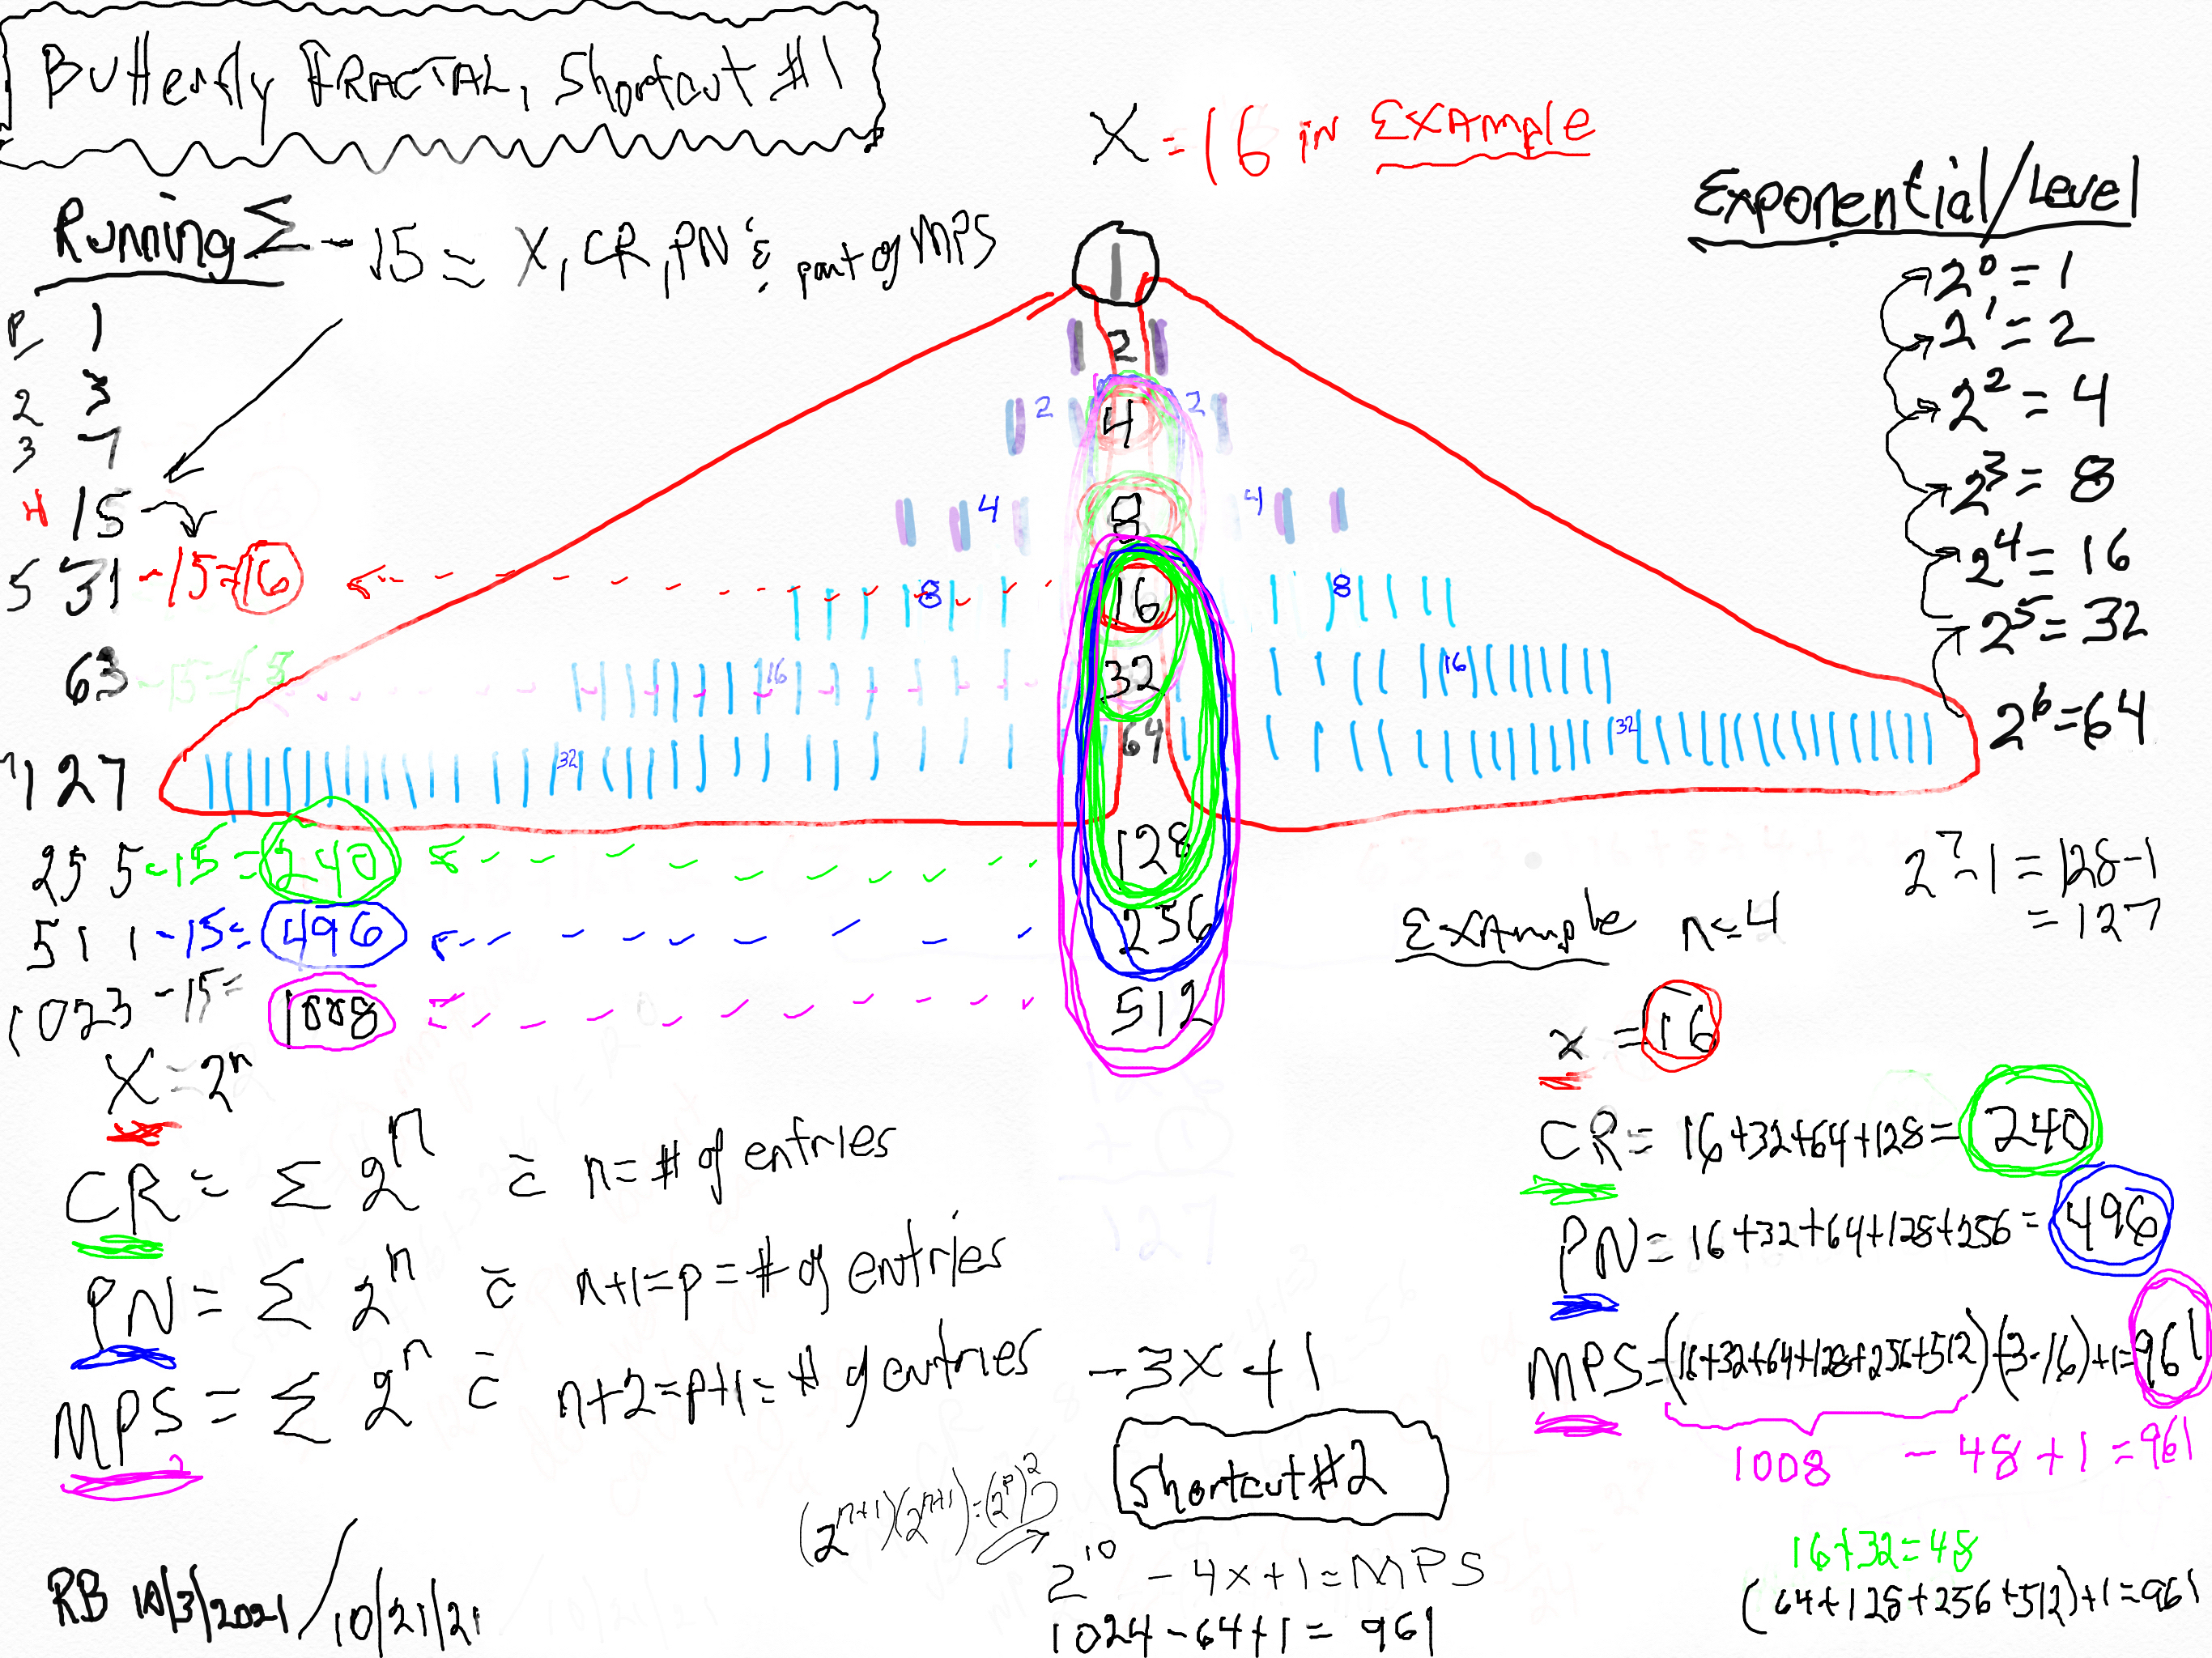 Butterfly FRACTAL, Shortcut #1
X = 16 in EXAmplE
Running Σ - 15 = X, CR, PN & part of MPS
Exponential/Level
P 1
2 3
3 7
4 15
5 31 - 15 = 16
63 - 15 = 48
7 127
255 - 15 = 240
511 - 15 = 496
1023 - 15 = 1008
1
2
2 4 2
4 8 4
8 16 8
16 32 16
32 64 32
128
256
512
2⁰ = 1
2¹ = 2
2² = 4
2³ = 8
2⁴ = 16
2⁵ = 32
2⁶ = 64
2⁷ - 1 = 128 - 1
= 127
X = 2ⁿ
CR = Σ 2ⁿ c̄ n = # of entries
PN = Σ 2ⁿ c̄ n+1 = p = # of entries
MPS = Σ 2ⁿ c̄ n+2 = p+1 = # of entries - 3x + 1
EXAmple n=4
x = 16
CR = 16+32+64+128 = 240
PN = 16+32+64+128+256 = 496
MPS = (16+32+64+128+256+512) - (3·16) + 1 = 961
1008 - 48 + 1 = 961
16+32=48
(64+128+256+512)+1=961
Shortcut #2
(2ⁿ⁺¹)(2ⁿ⁺¹) = (2ᵖ)²
2¹⁰ - 4x + 1 = MPS
1024 - 64 + 1 = 961
RB 10/3/2021 / 10/21/21